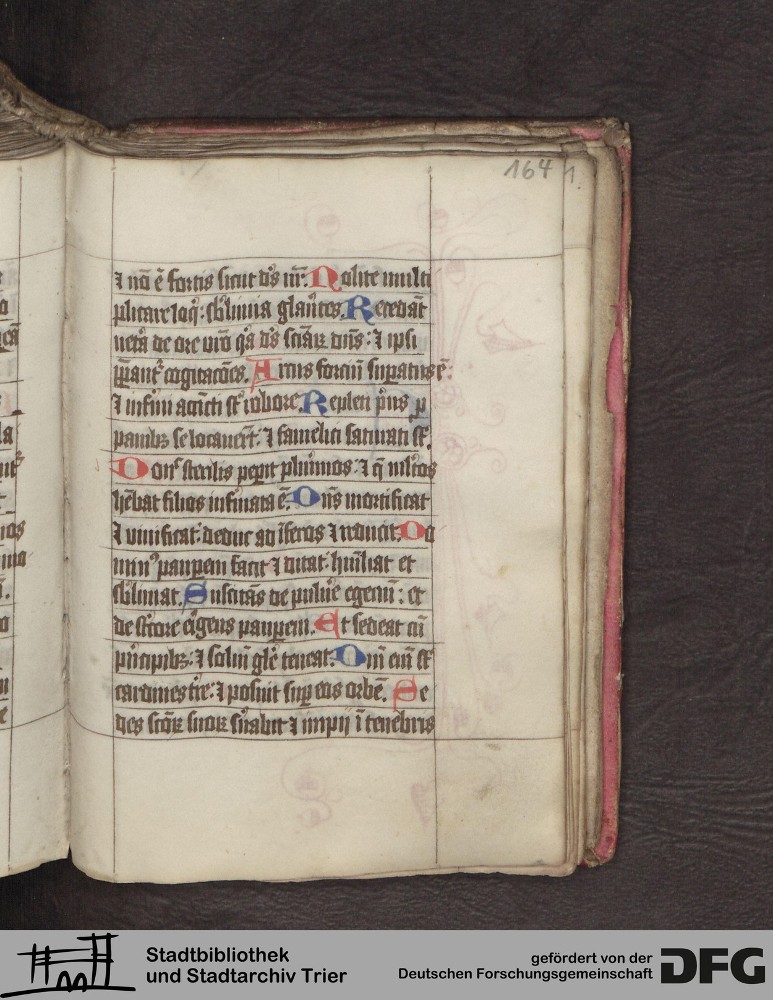 164
⁊ nō ē fortis sicut ds nr̄. Nolite multi
plicare loq̄: sblimia glantes. Recedāt
uetā de ore vrō qa ds sciaꝝ dns: ⁊ ipsi
ꝓpant cogitacōes. Arcus forciū suꝑatus ē:
⁊ infirmi accīcti st robore. Repleti pns ꝓ
panibꝫ se locauert: ⁊ famelici saturati st.
Don sterilis peꝑit plurimos: ⁊ q̄ mltos
hēbat filios infirmata ē. Dns mortificat
⁊ uiuificat: deduc ad īferos ⁊ reducit. Do
min⁹ pauꝑem facit ⁊ ditat: humliat et
sblimat. Suscitās de puluē egenū: et
de stcore eigens pauꝑem. Et sedeat cū
pncipibꝫ: ⁊ soliū glē teneat. Dni eni st
cardines tre: ⁊ posuit suꝑ eos orbē. Pe
des scōꝝ suoꝝ suabit ⁊ impij ī tenebris
Stadtbibliothek
und Stadtarchiv Trier
gefördert von der
Deutschen Forschungsgemeinschaft
DFG